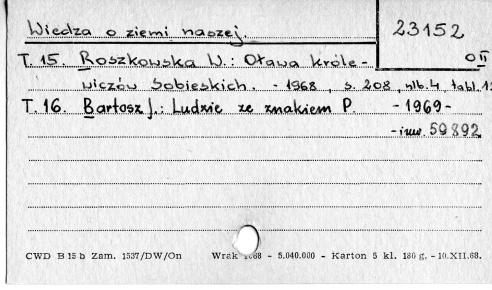 Wiedza o ziemi naszej.
23152
O II
T. 15. Roszkowska W.: Oława Króle-
wiczów Sobieskich. - 1968, s. 208, nlb. 4, tabl. 12
T. 16. Bartosz J.: Ludzie ze znakiem P. - 1969 -
- inw. 59892
CWD B 15 b Zam. 1537/DW/On Wrak 1968 - 5.040.000 - Karton 5 kl. 180 g. - 10.XII.68.